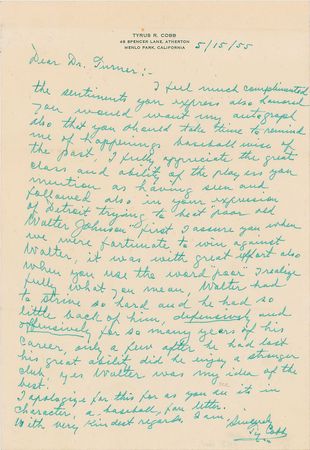 TYRUS R. COBB
48 SPENCER LANE, ATHERTON
MENLO PARK, CALIFORNIA
5/15/55
Dear Dr. Turner:-
I feel much complimented
the sentiments you express also honored
you would want my autograph
also that you should take time to remind
me of happenings baseball wise of
the past. I fully appreciate the great
class and ability of the players you
mention as having seen and
followed also in your expression
of Detroit trying to beat poor old
Walter Johnson" first I assure you when
we were fortunate to win against
Walter, it was with great effort also
when you use the word "poor" I realize
fully what you mean, Walter had
to strive so hard and he had so
little back of him, defensively and
offensively for so many years of his
career, only a few after he had lost
his great ability did he enjoy a stronger
club, yes Walter was my idea of the
best.
I apologize for this for as you see it in
character, a baseball, fan letter.
With very kindest regards, I am,
Sincerely
Ty Cobb